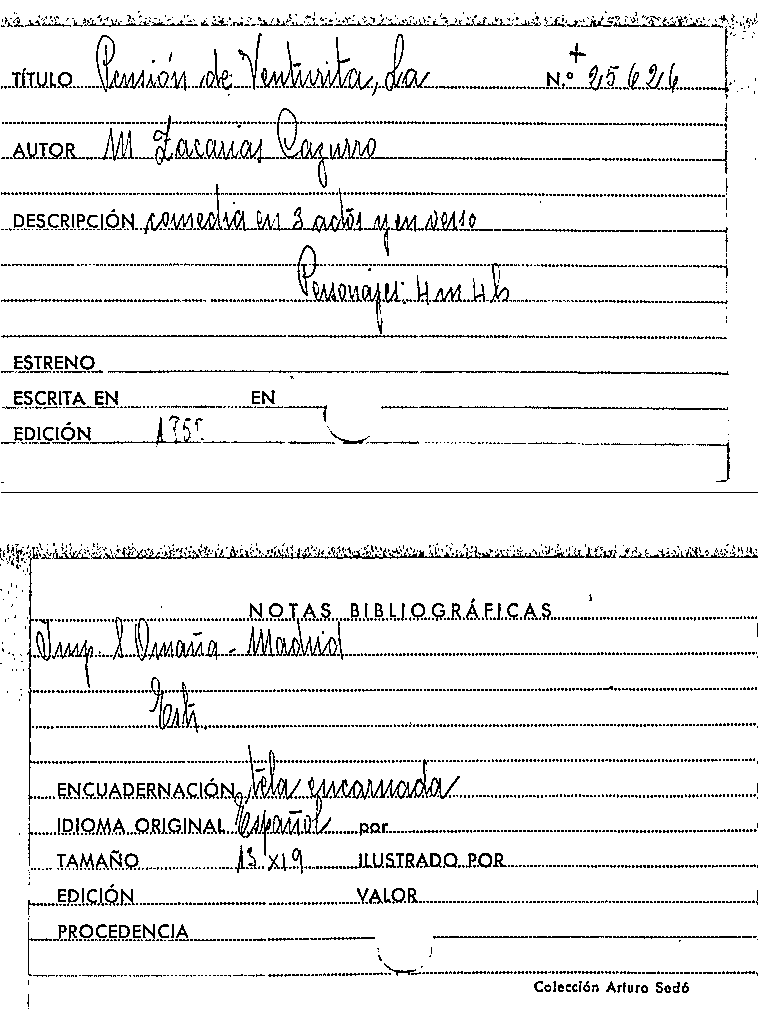 TÍTULO Pensión de Venturita, La N.º + 25626
AUTOR M Zacarias Cazurro
DESCRIPCIÓN comedia en 3 actos y en verso
Personajes: 4 m 4 h
ESTRENO
ESCRITA EN EN
EDICIÓN
NOTAS BIBLIOGRÁFICAS
Imp. S Omaña - Madrid
Estr.
ENCUADERNACIÓN tela encarnada
IDIOMA ORIGINAL Español por
TAMAÑO 13 x 19 ILUSTRADO POR
EDICIÓN VALOR
PROCEDENCIA
Colección Arturo Sedó